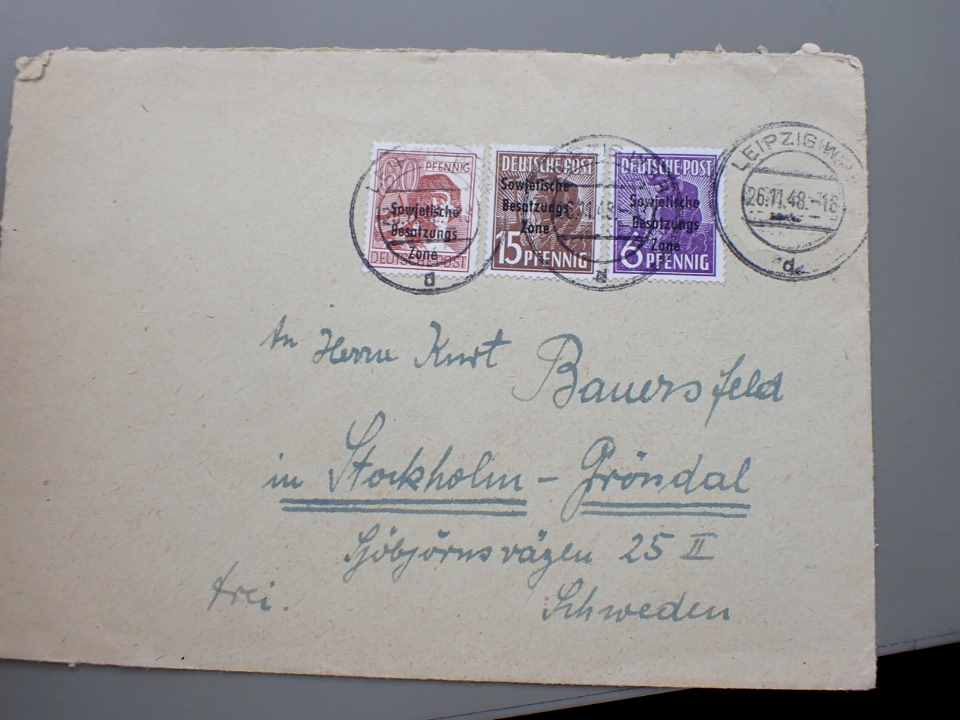 60 PFENNIG
Sowjetische
Besatzungs
Zone
DEUTSCHE POST
DEUTSCHE POST
Sowjetische
Besatzungs
Zone
15 PFENNIG
DEUTSCHE POST
Sowjetische
Besatzungs
Zone
6 PFENNIG
LEIPZIG
26.11.48.-18
d
d
An Herrn Kurt Bauersfeld
in Stockholm - Gröndal
Sjöbjörnsvägen 25 II
frei. Schweden